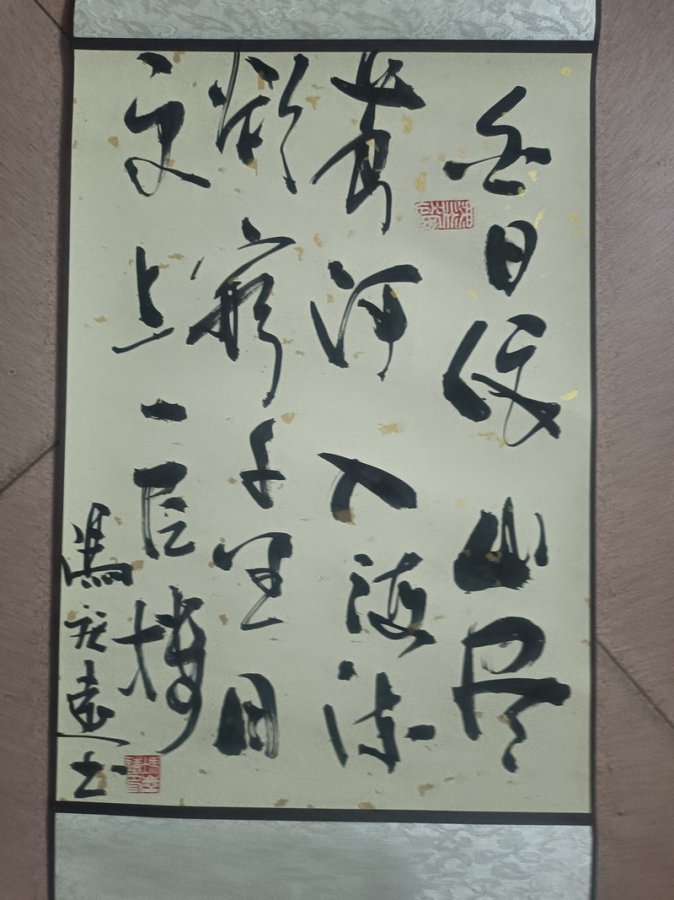 白日依山尽
黄河入海流
欲穷千里目
更上一层楼
馮
书